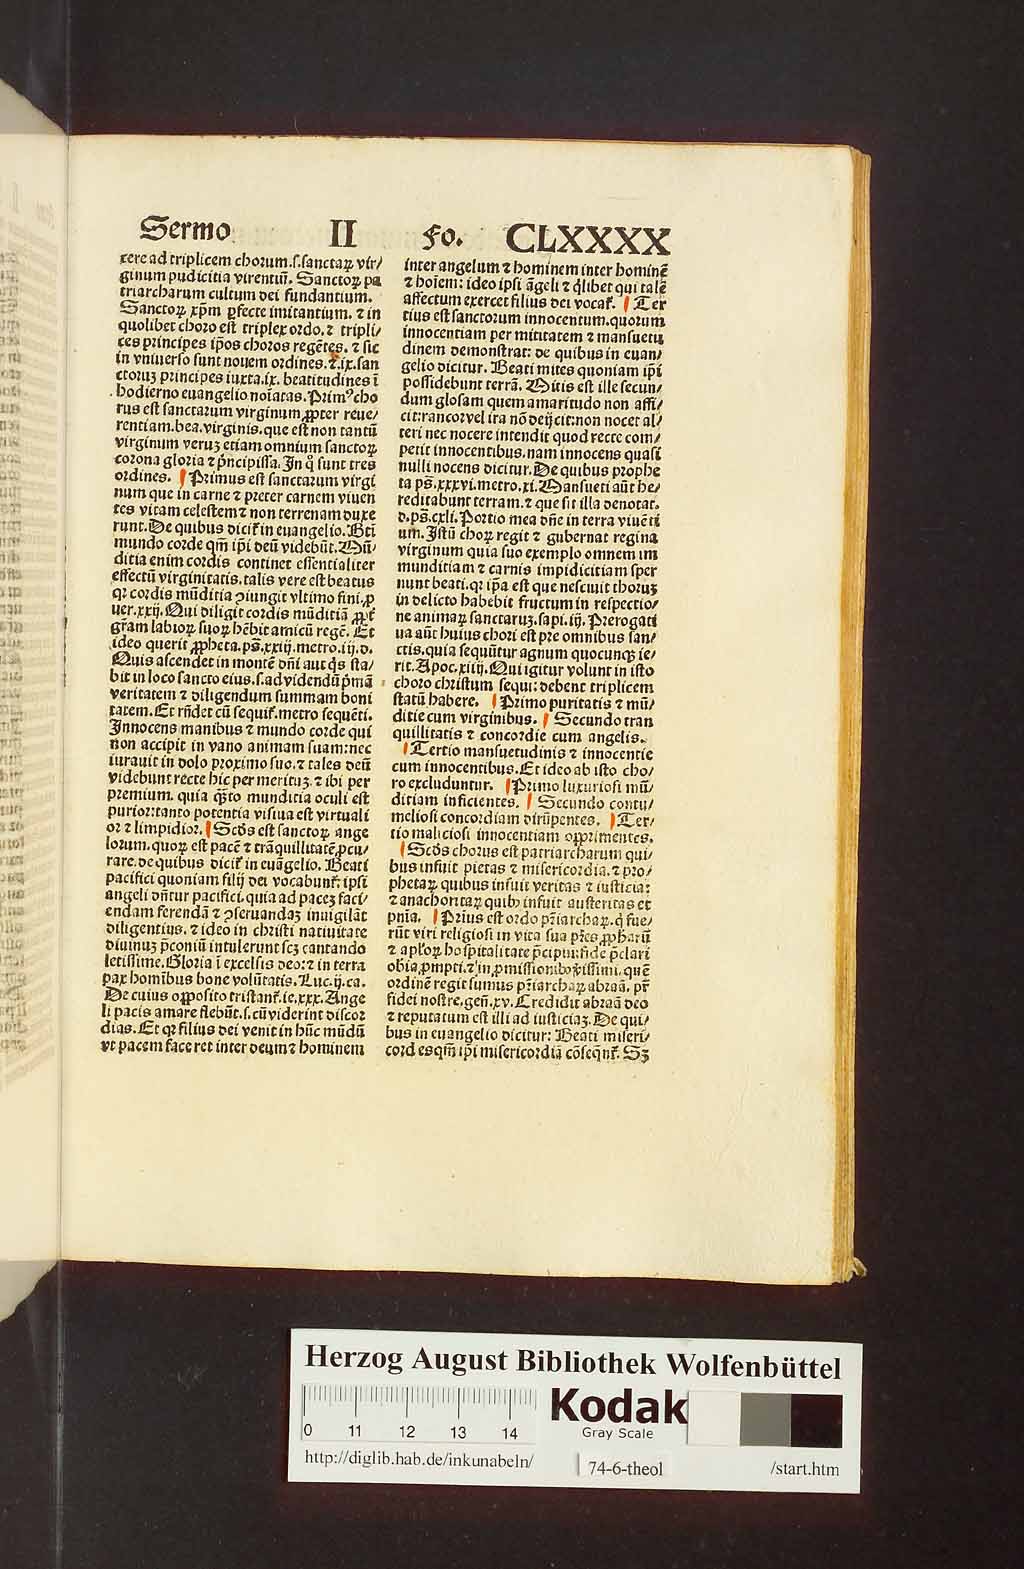 Sermo II Fo. CLXXXX
xere ad triplicem chorum.s.sanctaꝝ vir/
ginum pudicitia virentiū. Sanctoꝝ pa
triarcharum cultum dei fundantium.
Sanctoꝝ xp̄m ꝑfecte imitantium. ⁊ in
quolibet choro est triplex ordo. ⁊ tripli/
ces principes ip̄os choros regētes. ⁊ sic
in vniuerso sunt nouem ordines. ⁊.ix.san
ctoruꝫ principes iuxta.ix. beatitudines ī
hodierno euangelio noīatas. Primꝰ cho
rus est sanctarum virginum ꝓpter reue/
rentiam.bea.virginis.que est non tantū
virginum veruꝫ etiam omnium sanctoꝝ
corona gloria ⁊ pͥncipissa. In qͦ sunt tres
ordines. Primus est sanctarum virgi
num que in carne ⁊ preter carnem viuen
tes vitam celestem ⁊ non terrenam duxe
runt. De quibus dicit̄ in euangelio. Bt̄i
mundo corde qm̄ ip̄i deū videbūt. Mū/
ditia enim cordis continet essentialiter
effectū virginitatis. talis vere est beatus
qꝛ cordis mūditia ꝯiungit vltimo fini. ꝓ
uer.xxij. Qui diligit cordis mūditiā ꝓpt̄
gr̄am labioꝝ suoꝝ hēbit amicū regē. Et
ideo querit ꝓpheta.ps̄.xxiij.metro.iij.d.
Quis ascendet in montē dn̄i aut qͥs sta/
bit in loco sancto eius.s.ad videndū pͥmā
veritatem ⁊ diligendum summam boni
tatem. Et rn̄det cū sequit̄.metro sequēti.
Innocens manibus ⁊ mundo corde qui
non accipit in vano animam suam:nec
iurauit in dolo proximo suo.⁊ tales deū
videbunt recte hic per merituꝫ.⁊ ibi per
premium. quia qͣ̄to munditia oculi est
purior:tanto potentia visiua est virtuali
or ⁊ limpidior. Scd̄s est sanctoꝝ ange
lorum.quoꝝ est pacē ⁊ trāquillitatē ꝓcu/
rare.de quibus dicit̄ in euāgelio. Beati
pacifici quoniam filij dei vocabunt̄. ipsi
angeli dn̄tur pacifici.quia ad paceꝫ faci/
endam ferendā ⁊ ꝯseruandaꝫ inuigilāt
diligentius. ⁊ ideo in christi natiuitate
diuinuꝫ p̄coniū intulerunt scꝫ cantando
letissime. Gloria ī excelsis deo:⁊ in terra
pax homībus bone volūtatis. Luc.ij.ca.
De cuius opposito tristant̄.ie.xxx. Ange
li pacis amare flebūt.s.cū viderint discor
dias. Et qꝛ filius dei venit in hūc mūdū
vt pacem faceret inter deum ⁊ hominem
inter angelum ⁊ hominem inter hominē
⁊ hoīem: ideo ipsi āgeli ⁊ qͥlibet qui talē
affectum exercet filius dei vocat̄. Ter
tius est sanctorum innocentum.quorum
innocentiam per mititatem ⁊ mansuetu
dinem demonstrat: de quibus in euan/
gelio dicitur. Beati mites quoniam ip̄i
possidebunt terrā. Mitis est ille secun/
dum glosam quem amaritudo non affi/
cit:rancor vel ira nō deijcit:non nocet al/
teri nec nocere intendit quod recte com/
petit innocentibus.nam innocens quasi
nulli nocens dicitur. De quibus prophe
ta ps̄.xxxvi.metro.xi. Mansueti aūt he/
reditabunt terram.⁊ que sit illa denotat.
d.ps̄.cxli. Portio mea dn̄e in terra viuēti
um. Istū choꝝ regit ⁊ gubernat regina
virginum quia suo exemplo omnem im
munditiam ⁊ carnis impidicitiam sper
nunt beati.qꝛ ip̄a est que nesciuit thoruꝫ
in delicto habebit fructum in respectio/
ne animaꝝ sanctaruꝫ.sapi.iij. Prerogati
ua aūt huius chori est pre omnibus san/
ctis.quia sequūtur agnum quocunqꝫ ie/
rit. Apoc.xiiij. Qui igitur volunt in isto
choro christum sequi: debent triplicem
statū habere. Primo puritatis ⁊ mū/
ditie cum virginibus. Secundo tran
quillitatis ⁊ concordie cum angelis.
Tertio mansuetudinis ⁊ innocentie
cum innocentibus. Et ideo ab isto cho/
ro excluduntur. Primo luxuriosi mū/
ditiam inficientes. Secundo contu/
meliosi concordiam dirūpentes. Ter/
tio maliciosi innocentiam opprimentes.
Scd̄s chorus est patriarcharum qui/
bus infuit pietas ⁊ misericordia. ⁊ pro/
phetaꝝ quibus infuit veritas ⁊ iusticia:
⁊ anachoritaꝝ quibꝰ infuit austeritas et
pn̄ia. Prīus est ordo pr̄iarchaꝝ.qͥ fue/
rūt viri religiosi in vita sua pr̄es ꝓpharū
⁊ apl̄oꝝ hospitalitate p̄cipui:fide p̄clari
obīa ꝓmpti.⁊ in ꝓmissionibꝰ quē
ordinē regit sumus pr̄iarchaꝝ abraā. pr̄
fidei nostre.gen̄.xv. Credidit abraā deo
⁊ reputatum est illi ad iusticiaꝫ. De qui/
bus in euangelio dicitur: Beati miseri/
cordes qm̄ ip̄i misericordiā cōseq̄nt̄. Sꝫ
Herzog August Bibliothek Wolfenbüttel
0 11 12 13 14
Kodak
Gray Scale
http://diglib.hab.de/inkunabeln/ 74-6-theol /start.htm